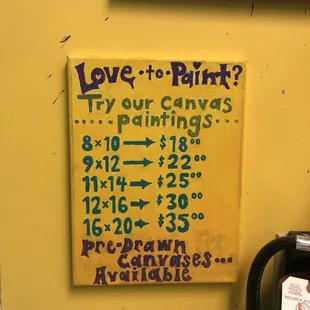 Love·to·Paint?
Try our Canvas
.....paintings...
8×10→$18⁰⁰
9×12→$22⁰⁰
11×14→$25⁰⁰
12×16→$30⁰⁰
16×20→$35⁰⁰
Pre-Drawn
Canvases...
Available